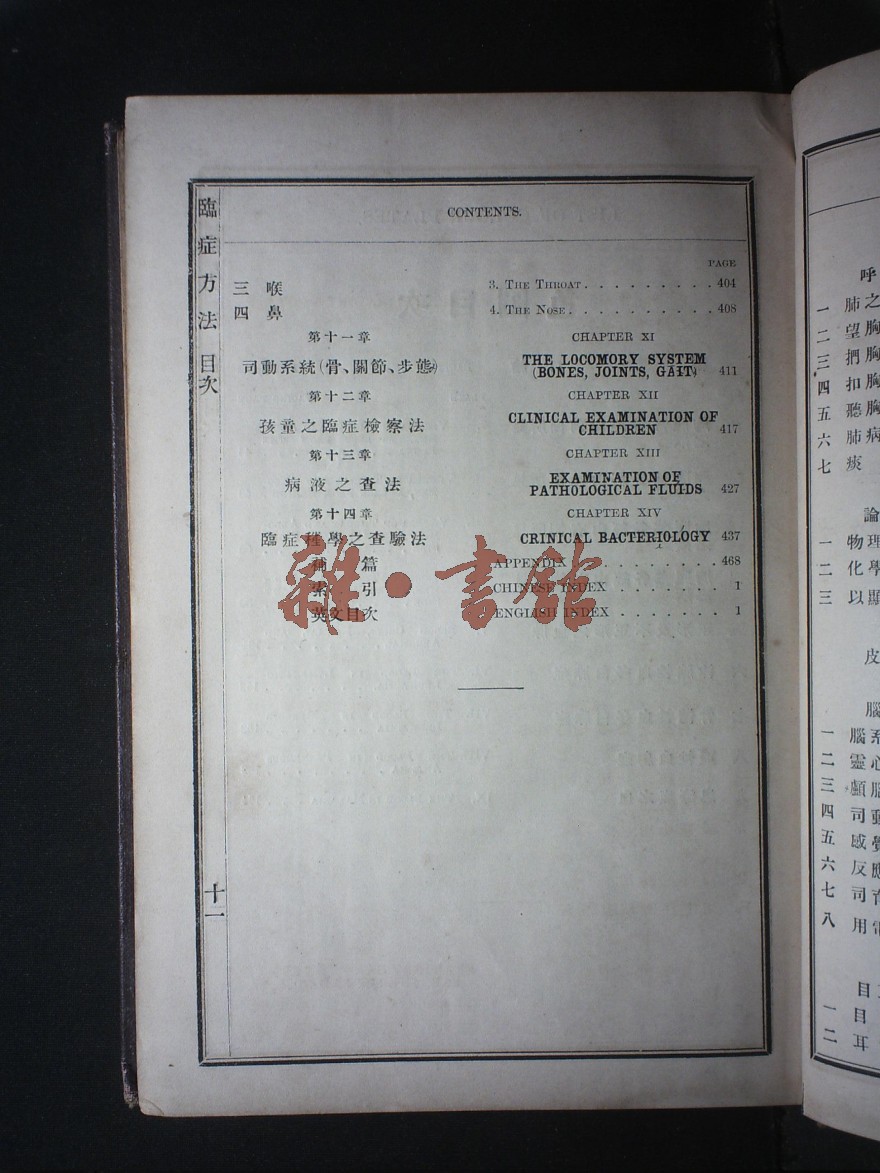 臨症方法 目次
CONTENTS.
PAGE
三 喉 3. THE THROAT . . . . . . . . . 404
四 鼻 4. THE NOSE . . . . . . . . . . . 408
第十一章 CHAPTER XI
司動系統(骨、關節、步態) THE LOCOMORY SYSTEM
(BONES, JOINTS, GAIT) 411
第十二章 CHAPTER XII
孩童之臨症檢察法 CLINICAL EXAMINATION OF
CHILDREN 417
第十三章 CHAPTER XIII
病液之查法 EXAMINATION OF
PATHOLOGICAL FLUIDS 427
第十四章 CHAPTER XIV
臨症種學之查驗法 CRINICAL BACTERIOLOGY 437
補篇 APPENDIX . . . . . . . . . . 468
索引 CHINESE INDEX . . . . . . . 1
英文目次 ENGLISH INDEX . . . . . . . 1
雜·書館
十二
呼
一 肺之
二 望胸
三 捫胸
四 扣胸
五 聽胸
六 肺病
七 痰
論
一 物理
二 化學
三 以顯
皮
腦
一 腦系
二 靈心
三 顱腦
四 司動
五 感覺
六 反應
七 司育
八 用電
目
一 目
二 耳